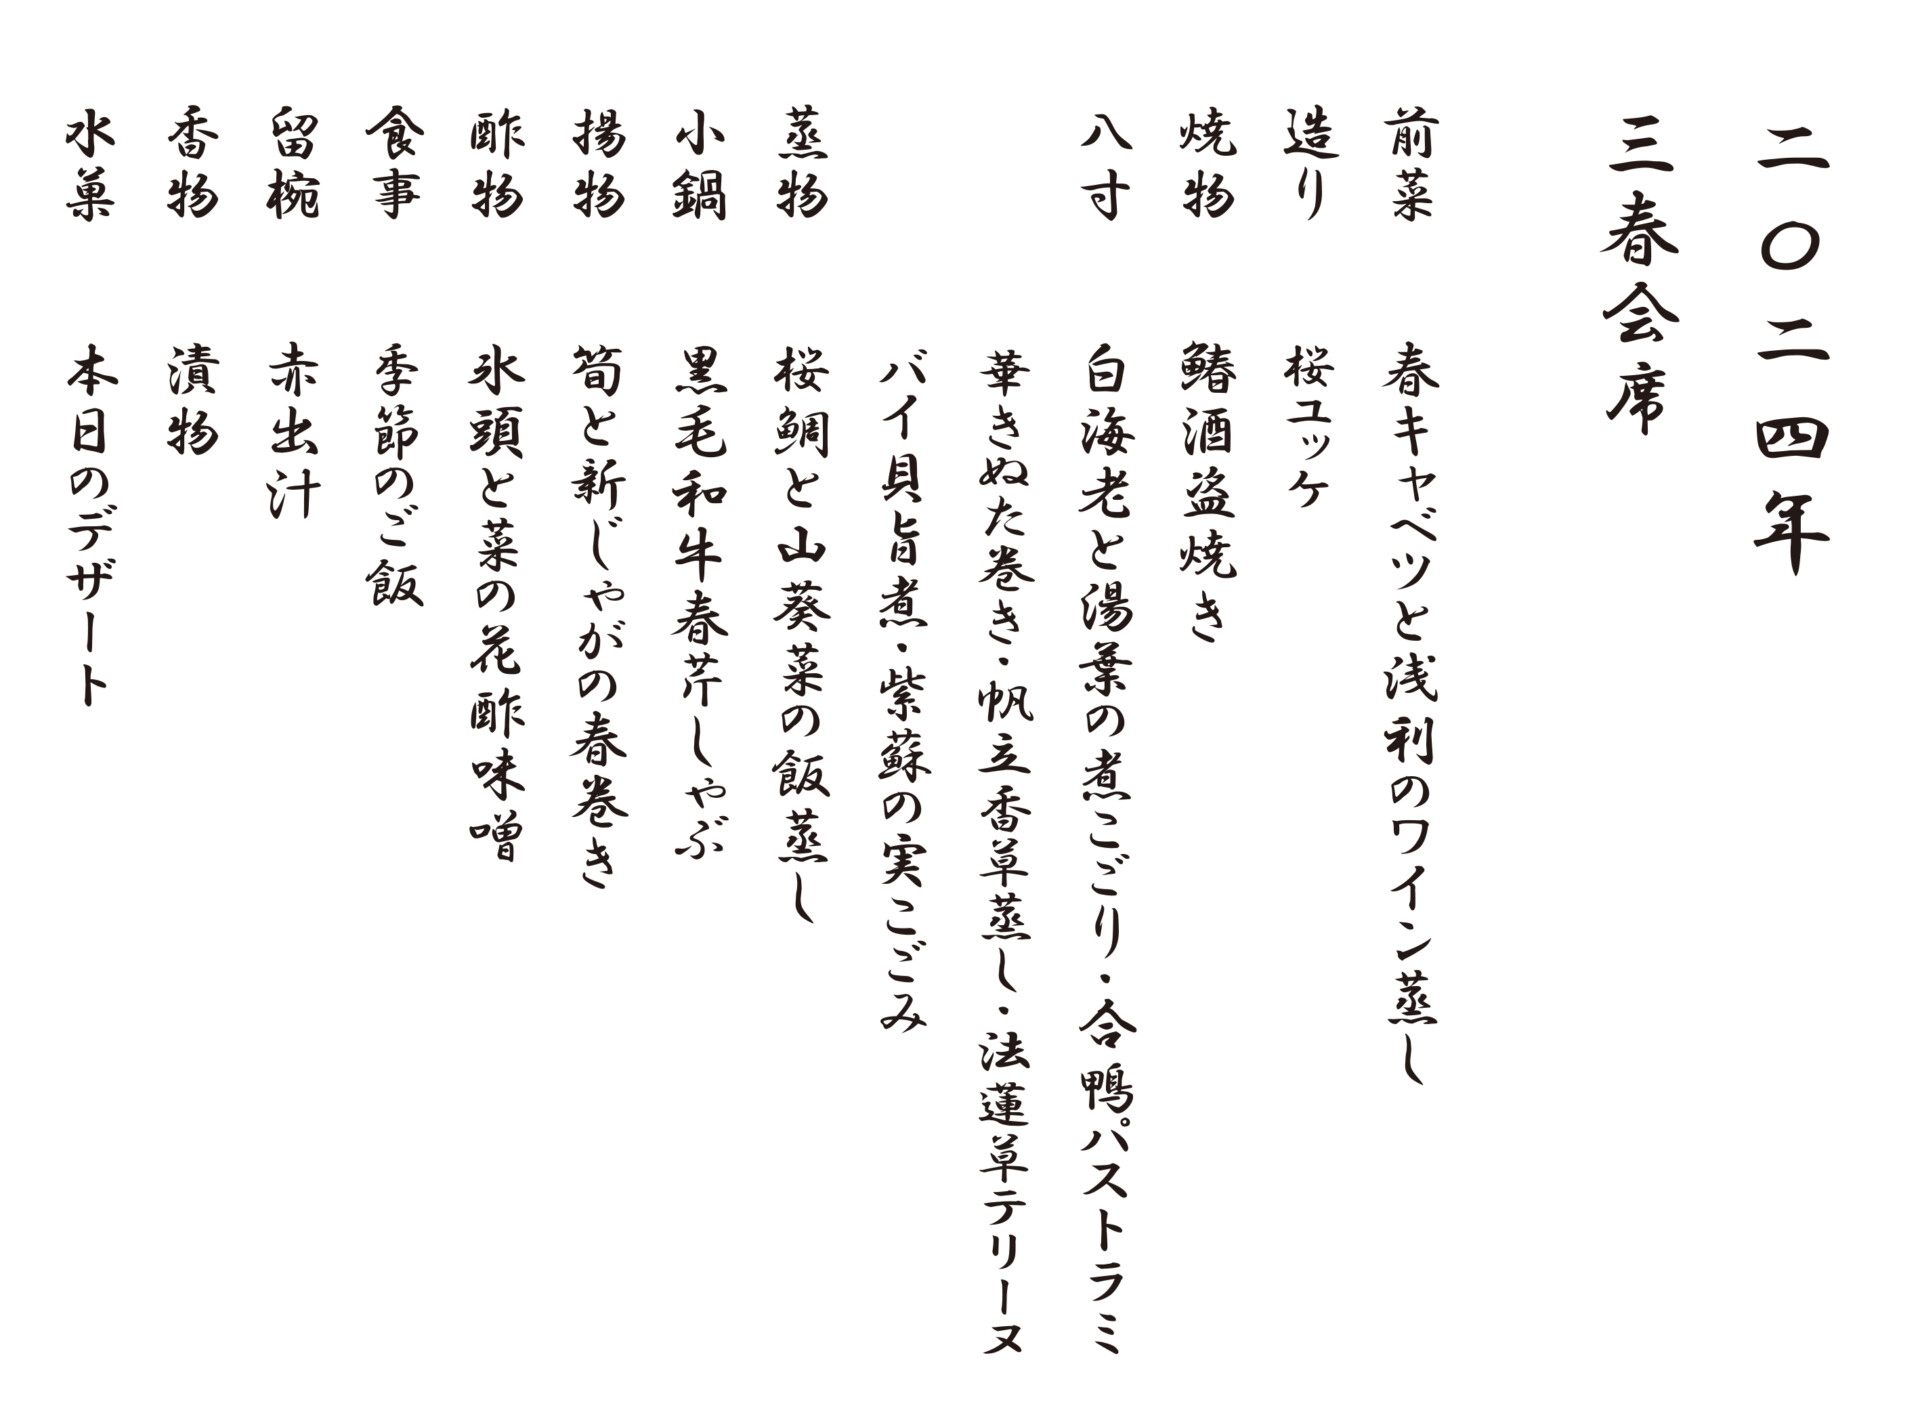 二〇二四年
三春会席
前菜 春キャベツと浅利のワイン蒸し
造り 桜ユッケ
焼物 鰆酒盗焼き
八寸 白海老と湯葉の煮こごり・合鴨パストラミ
華きぬた巻き・帆立香草蒸し・法蓮草テリーヌ
バイ貝旨煮・紫蘇の実こごみ
蒸物 桜鯛と山葵菜の飯蒸し
小鍋 黒毛和牛春芹しゃぶ
揚物 筍と新じゃがの春巻き
酢物 氷頭と菜の花酢味噌
食事 季節のご飯
留椀 赤出汁
香物 漬物
水菓 本日のデザート